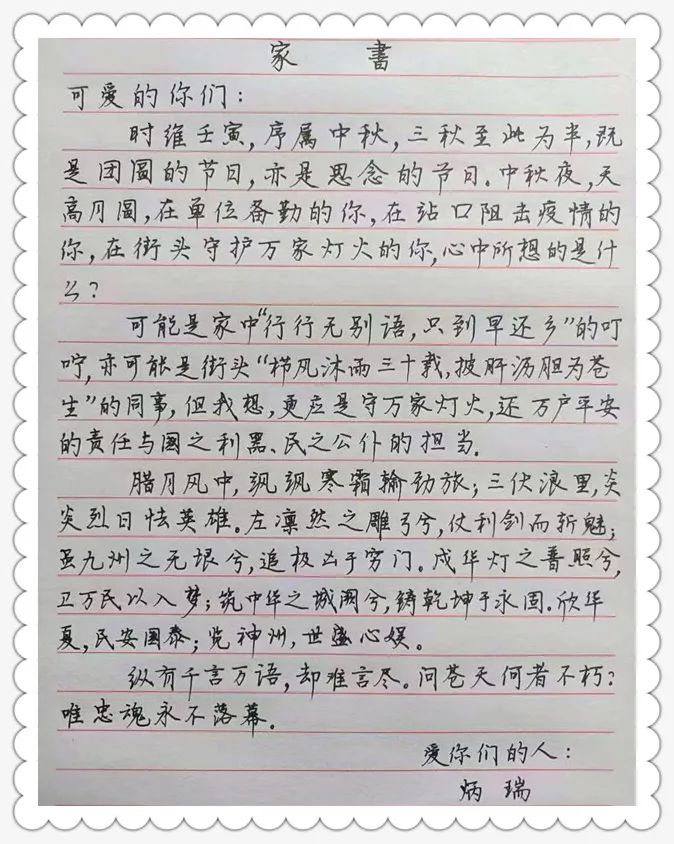 家 書
可爱的你们：
时维壬寅，序属中秋，三秋至此为半，既
是团圆的节日，亦是思念的节日。中秋夜，天
高月圆，在单位备勤的你，在站口阻击疫情的
你，在街头守护万家灯火的你，心中所想的是什
么？
可能是家中“行行无别语，只到早还乡”的叮
咛，亦可能是街头“栉风沐雨三十载，披肝沥胆为苍
生”的同事，但我想，更应是守万家灯火，还万户平安
的责任与国之利器、民之公仆的担当。
腊月风中，飒飒寒霜输劲旅；三伏浪里，炎
炎烈日怯英雄。左凛然之雕弓兮，仗利剑而斩魅；
虽九州之无垠兮，追极凶于穷门。戍华灯之普照兮，
卫万民以入梦；筑中华之城阙兮，铸乾坤于永固。欣华
夏，民安国泰；览神州，世盛心娱。
纵有千言万语，却难言尽。问苍天何者不朽？
唯忠魂永不落幕。
爱你们的人：
炳瑞